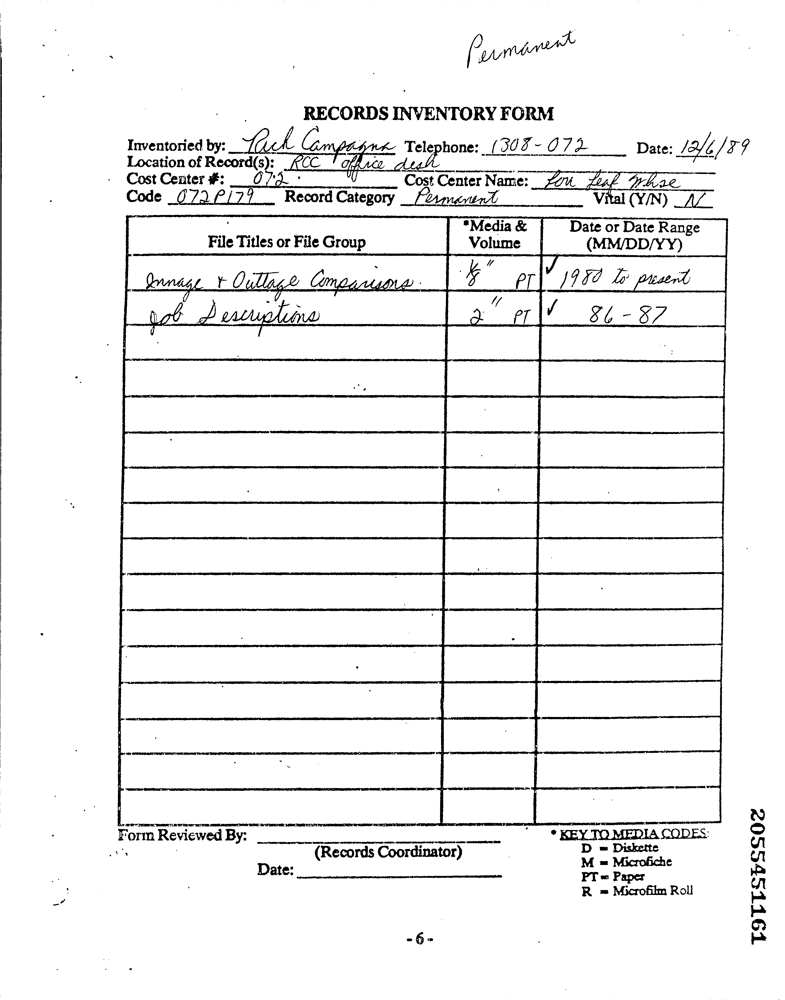 Permanent
RECORDS INVENTORY FORM
Inventoried by: Rich Campagna Telephone: 1308-072 Date: 12/6/89
Location of Record(s): RCC office desk
Cost Center #: 072 Cost Center Name: Lou Leaf Whse
Code 072P179 Record Category Permanent Vital (Y/N) N
File Titles or File Group *Media & Volume Date or Date Range (MM/DD/YY)
Innage & Outtage Comparisons 1/8" PT ✓ 1980 to present
Job Descriptions 2" PT ✓ 86-87
Form Reviewed By:
(Records Coordinator)
Date:
* KEY TO MEDIA CODES:
D = Diskette
M = Microfiche
PT = Paper
R = Microfilm Roll
-6-
2055451161